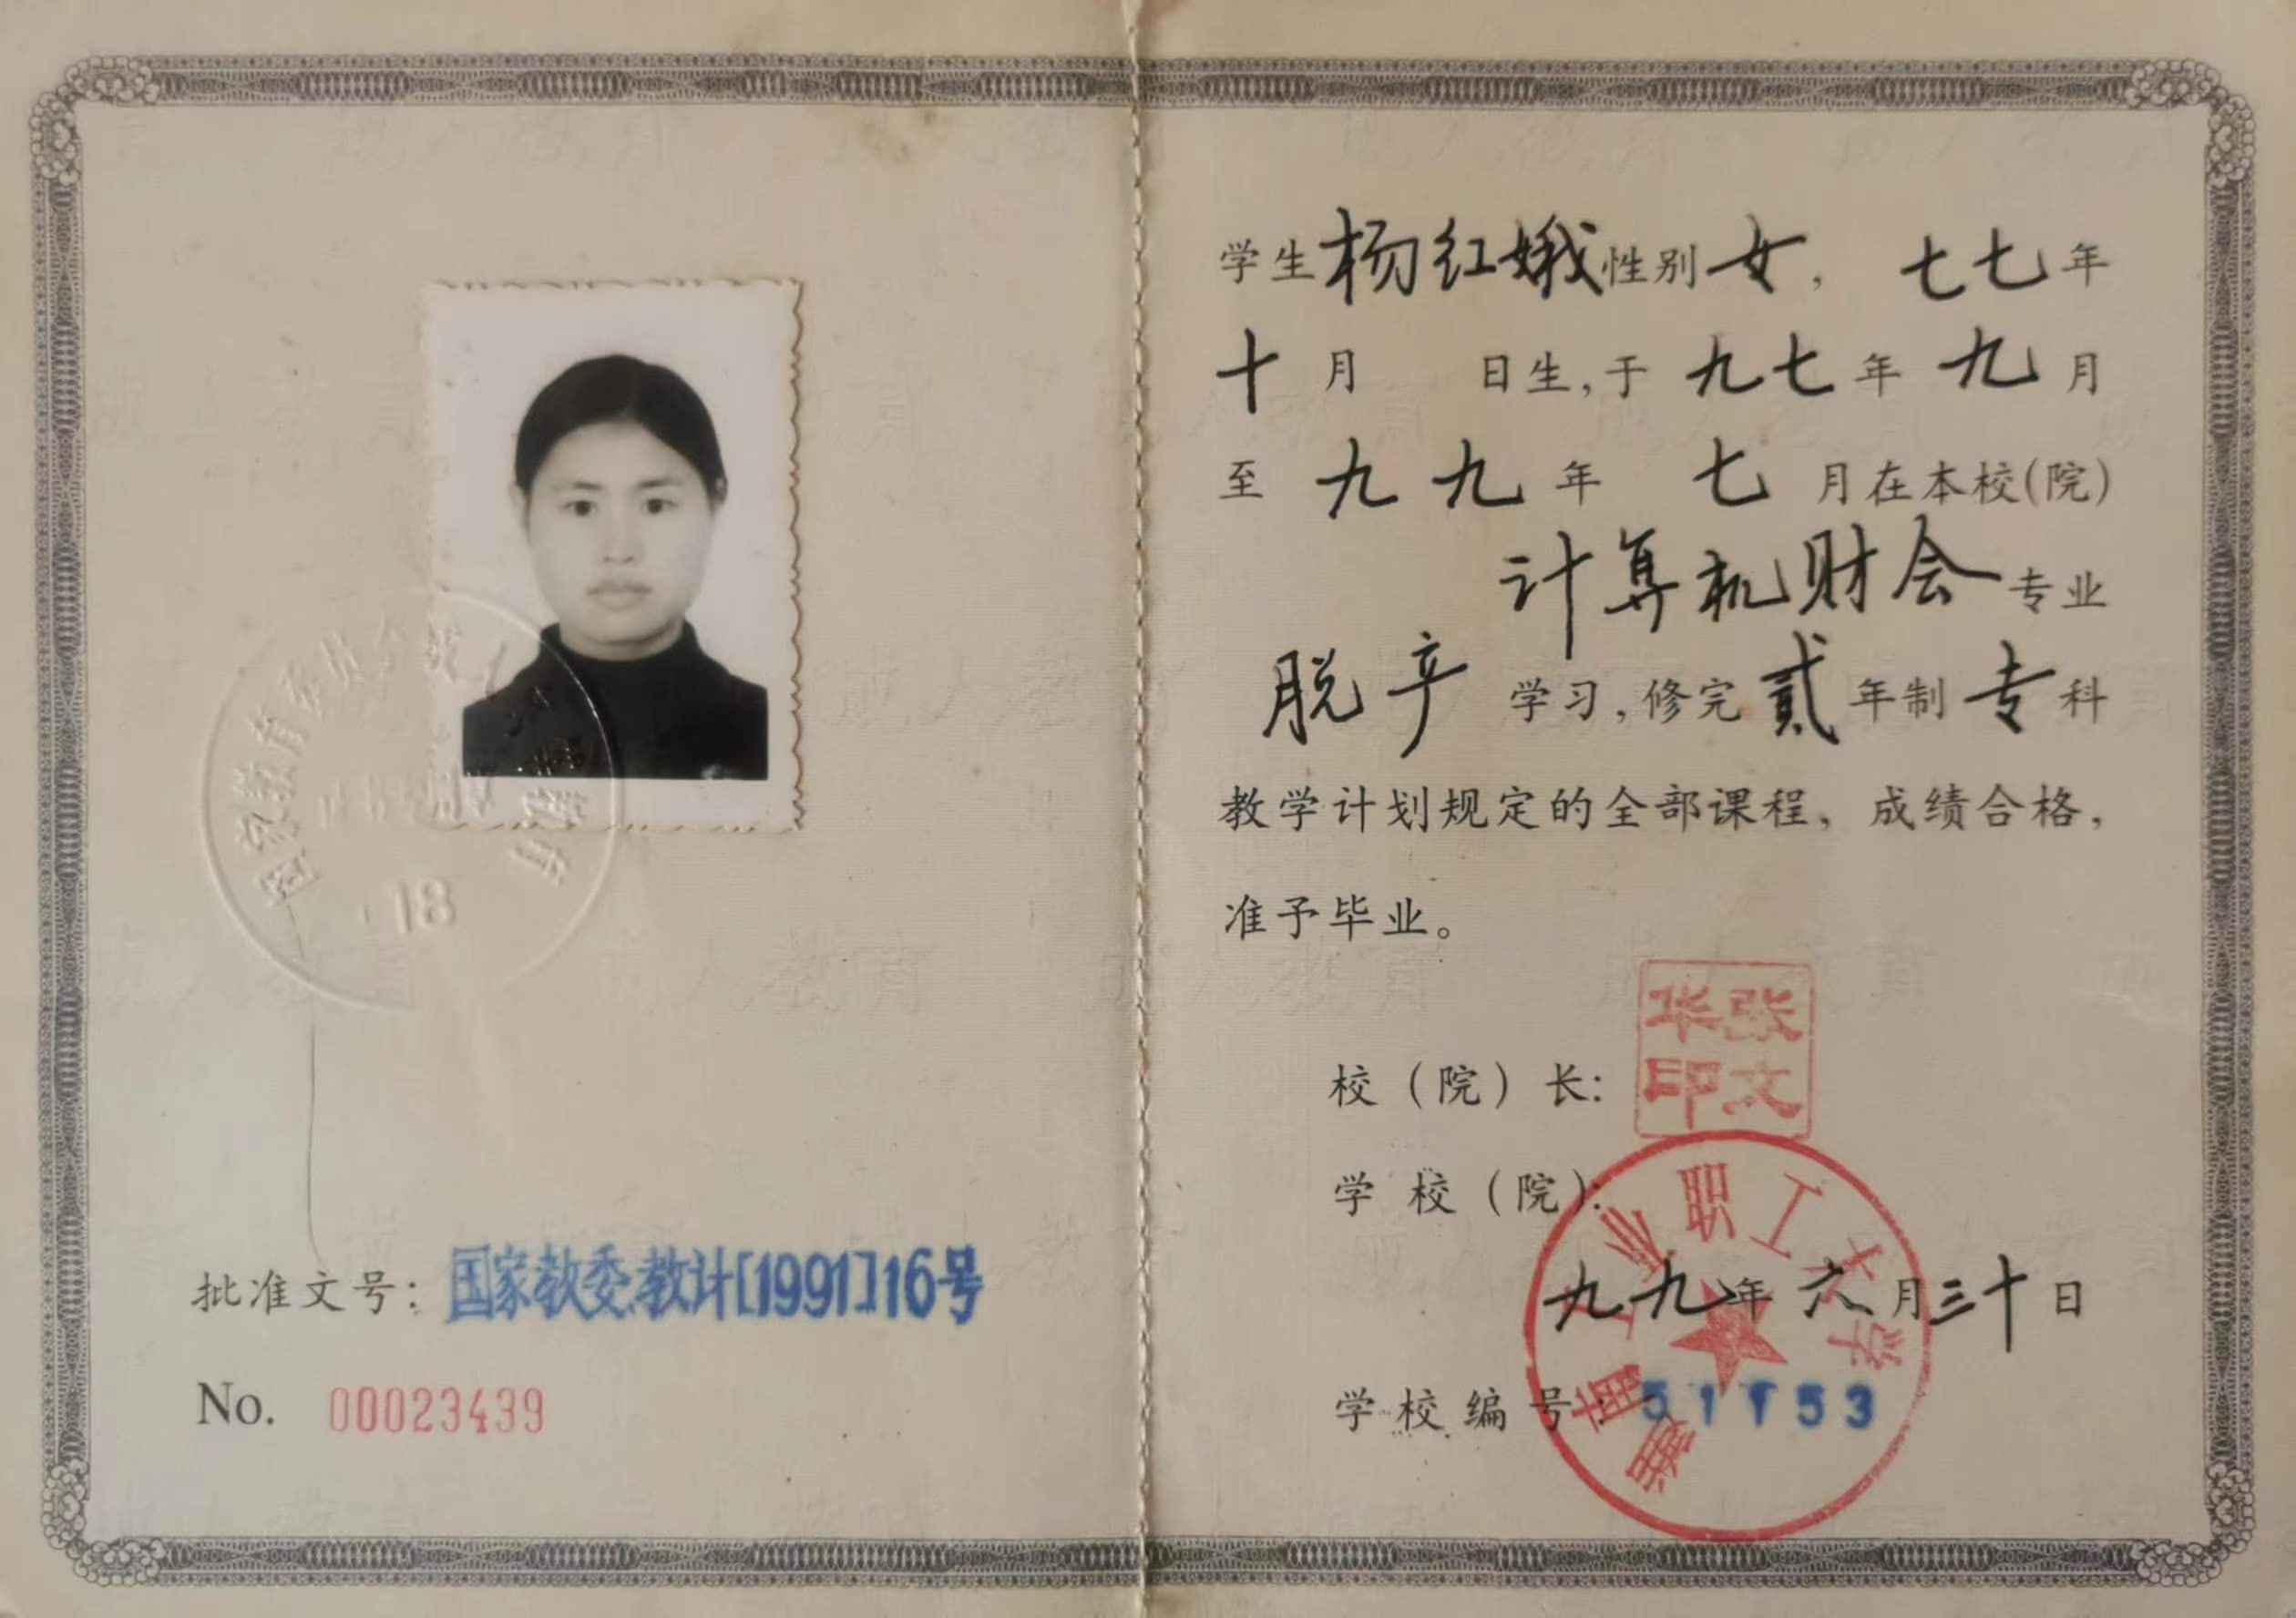 国家教育委员会
18
批准文号：国家教委教计[1991]16号
No. 00023439
学生杨红娥性别女，七七年
十月 日生，于九七年九月
至九九年七月在本校(院)
计算机财会专业
脱产学习，修完贰年制专科
教学计划规定的全部课程，成绩合格，
准予毕业。
校（院）长：
张文华印
学校（院）：
湖南工业职工大学
九九年六月三十日
学校编号：51153
成人教育